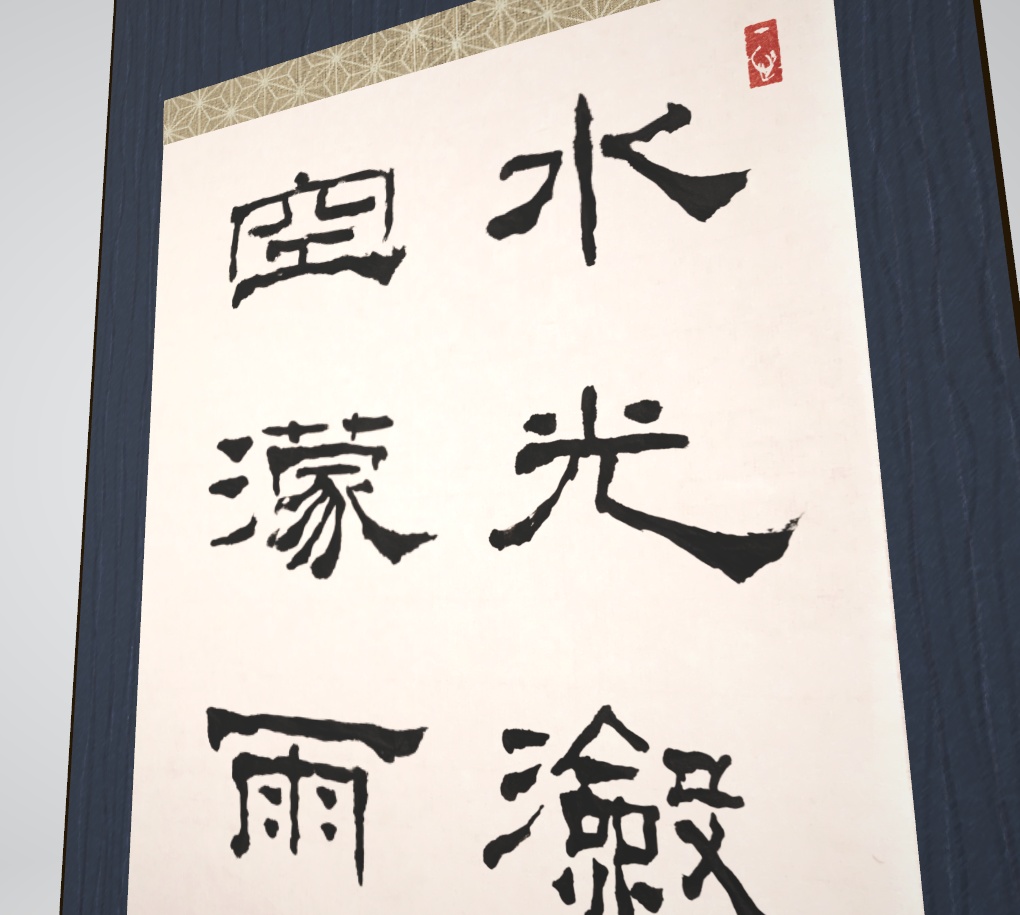 水光瀲
空濛雨